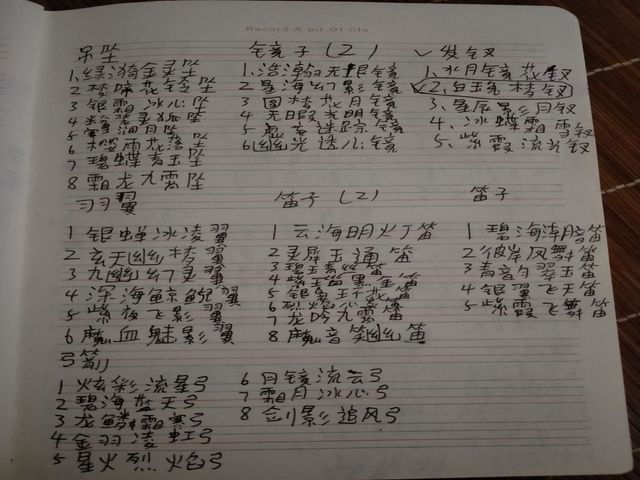 Record A bit Of life
吊坠
1、绿漪金灵坠
2 梦嗅花铃坠
3 银霜冰心坠
4 粉装灵狐坠
5 涧月坠
6 樱雨花落坠
7 碧蝶青玉坠
8 霜龙九霄坠
镜子(2)
1、浩瀚无垠镜
2 星海幻影镜
3 圆梦花月镜
4 无暇光明镜
5 迷踪镜
6 幽光透心镜
✓发钗
1、水月镜花钗
✓2、白玉梦钗
3、星辰累影月钗
4、冰蝶霜雪钗
5、紫霞流光钗
羽翼
1 银蝉冰凌翼
2 玄天幽梦翼
3 九幽幻灵翼
4 深海鲸鲵翼
5 紫夜飞影翼
6 魔血魅影翼
笛子(2)
1 云海明火丁笛
2 灵犀玉通笛
3 碧玉青丝笛
4 紫玉笛黑金笛
5 银星
6 烈火
7 龙吟九霄笛
8 魔音笑幽笛
笛子
1 碧海涛暗笛
2 彼岸风舞笛
3 青音勺翠玉笛
4 银翼飞天笛
5 紫霞飞舞笛
弓箭
1 炫彩流星弓
2 碧海蓝天弓
3 龙鳞霜寒弓
4 金羽凌虹弓
5 星火烈焰弓
6 月镜流云弓
7 霜月冰心弓
8 剑影追风弓